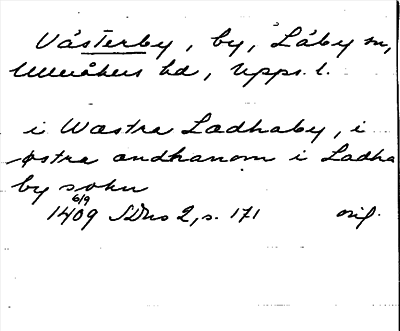 Västerby, by, Läby sn,
Ulleråkers hd, Upps. l.
i Wæstra Ladhaby, i
østra andhanom i Ladha
by sokn
6/9
1409 SDns 2, s. 171 orig.